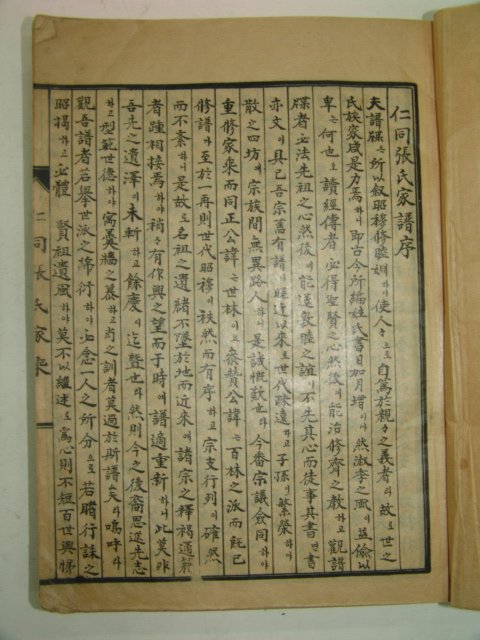 仁同張氏家譜序
夫譜牒는所以叙昭穆修睦婣하야使人々으로自篤於親々之義者라故로世之
氏族家咸是力焉하니即古今所編姓氏書日如月增이라然淑季之風이益偸以
卑는何也오讀經傳者必得聖賢之心然後에能治修齊之敎하고觀譜
牒者必法先祖之心然後에能遂敦睦之誼니不先其心而徒事其書면書
亦文이具已吾宗舊有譜나睡近以來로世代疎遠하고子孫이繁榮하야
散之四坊에宗族間無異路人하니是誠慨歎也라今番宗議僉同하야
重修家乘而同正公諱는世林이오參贊公諱는百林之派而旣已
修譜가至於一再則世代昭穆이秩然而有序하고宗支行列이確然
而不紊하니是故로名祖之遺緖不墜於地而近來에諸宗之釋褐通籍
者踵相接焉하야禍々有作興之望而于時에譜適重新하니此莫非
吾先之遺澤이未斬하고餘慶이迄曁也라然則今之後裔思道先志
하고型範世德하야寓羹牆之慕하고尙之訓者莫過於斯譜矣라嗚呼라
觀吾譜者若擧世派之蕃衍하야必念一人之所分으로若睹行誄之
昭揭하고必體 賢祖遺風하야莫不以繼述로爲心則不短百世興悌
仁同張氏家乘